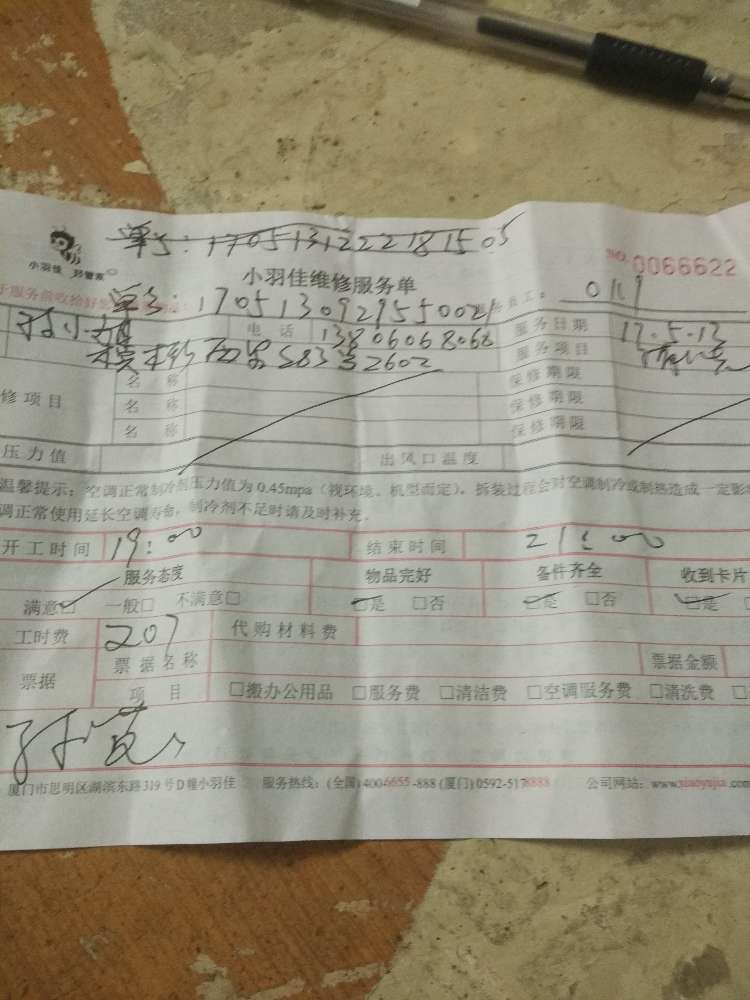 单号:1705131222181505
小羽佳 好管家
NO. 0066622
小羽佳维修服务单
单号:1705130929550021 服务员工: 0119
孙小姐 电话 13806068068 服务日期 17.5.13
583号2602 服务项目
修项目 名称 保修期限
名称 保修期限
名称 保修期限
压力值 出风口温度
温馨提示:空调正常制冷剂压力值为0.45mpa(视环境、机型而定)。拆装过程会对空调制冷或制热造成一定影
调正常使用延长空调寿命,制冷剂不足时请及时补充。
开工时间 19:00 结束时间 21:00
服务态度 物品完好 备件齐全 收到卡片
满意☑ 一般□ 不满意□ ☑是 □否 ☑是 □否 ☑是
工时费 207 代购材料费
票据 票据名称 票据金额
项目 □搬办公用品 □服务费 □清洁费 □空调服务费 □清洗费 □
厦门市思明区湖滨东路319号D幢小羽佳 服务热线:(全国)4006655-888 (厦门)0592-5178888 公司网站:www.xiaoyujia.com